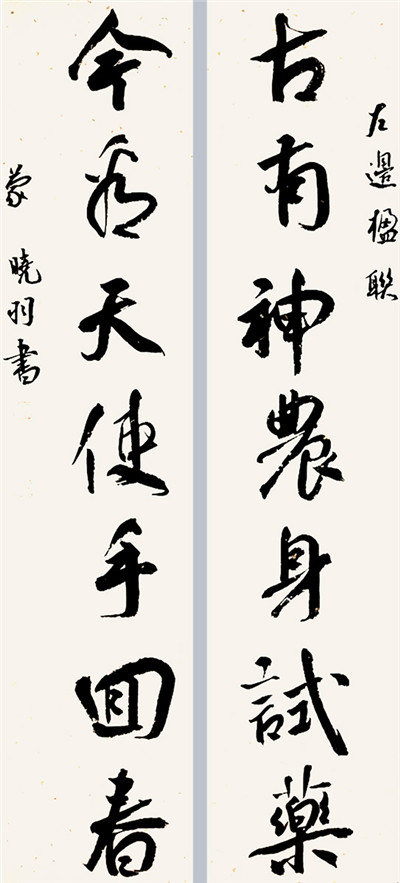 左邊楹聯
古有神農身試藥
今看天使手回春
蒙曉羽書